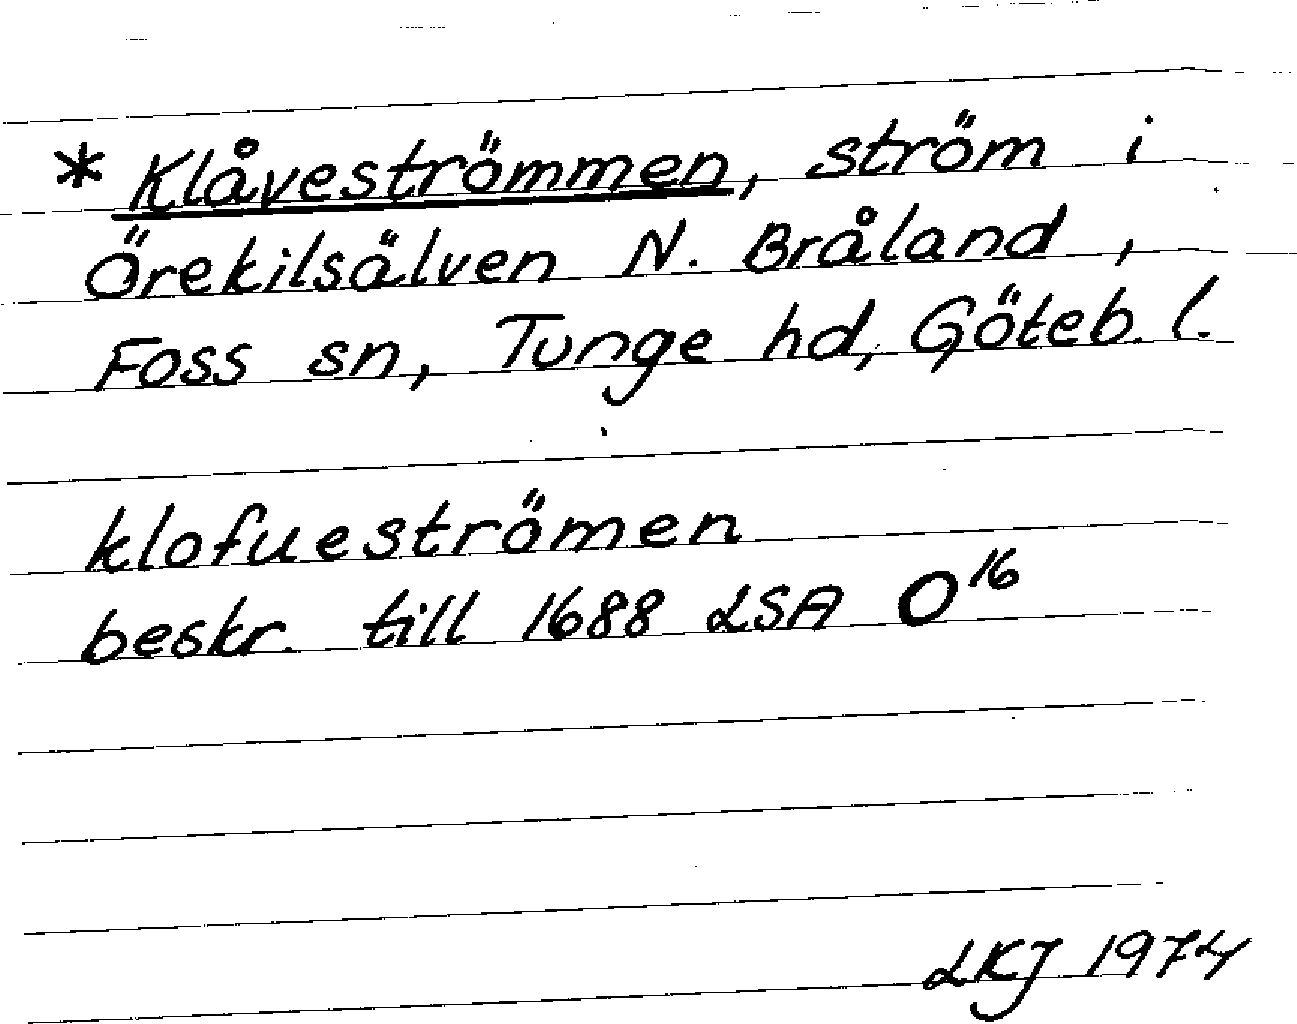 * Klåveströmmen, ström i
Örekilsälven N. Bråland,
Foss sn, Tunge hd, Göteb. l.
klofueströmen
beskr. till 1688 LSA O¹⁶
LKJ 1974